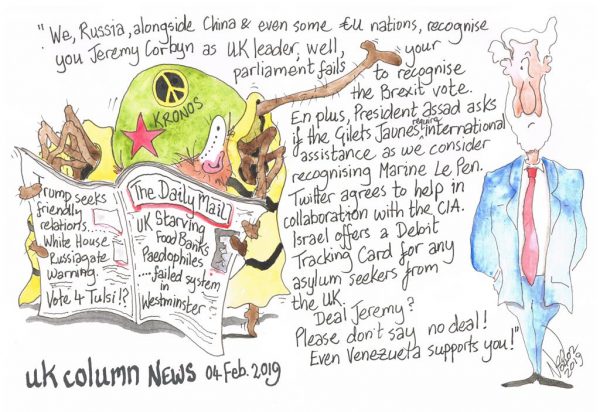 "We, Russia, alongside China & even some €U nations, recognise
you Jeremy Corbyn as UK leader, well, your
parliament fails to recognise
the Brexit vote.
En plus, President assad asks
if the Gilets Jaunes require international
assistance as we consider
recognising Marine Le Pen.
Twitter agrees to help in
collaboration with the CIA.
Israel offers a Debit
Tracking Card for any
asylum seekers from
the UK.
Deal Jeremy?
Please don't say no deal!
Even Venezuela supports you!"
KRONOS
Trump seeks
friendly
relations..
White House
Russiagate
warning.
Vote 4 Tulsi!?
The Daily Mail
UK Starving
Food Banks
Paedophiles
....failed system
in
Westminster
UK COLUMN NEWS 04 Feb. 2019
2019